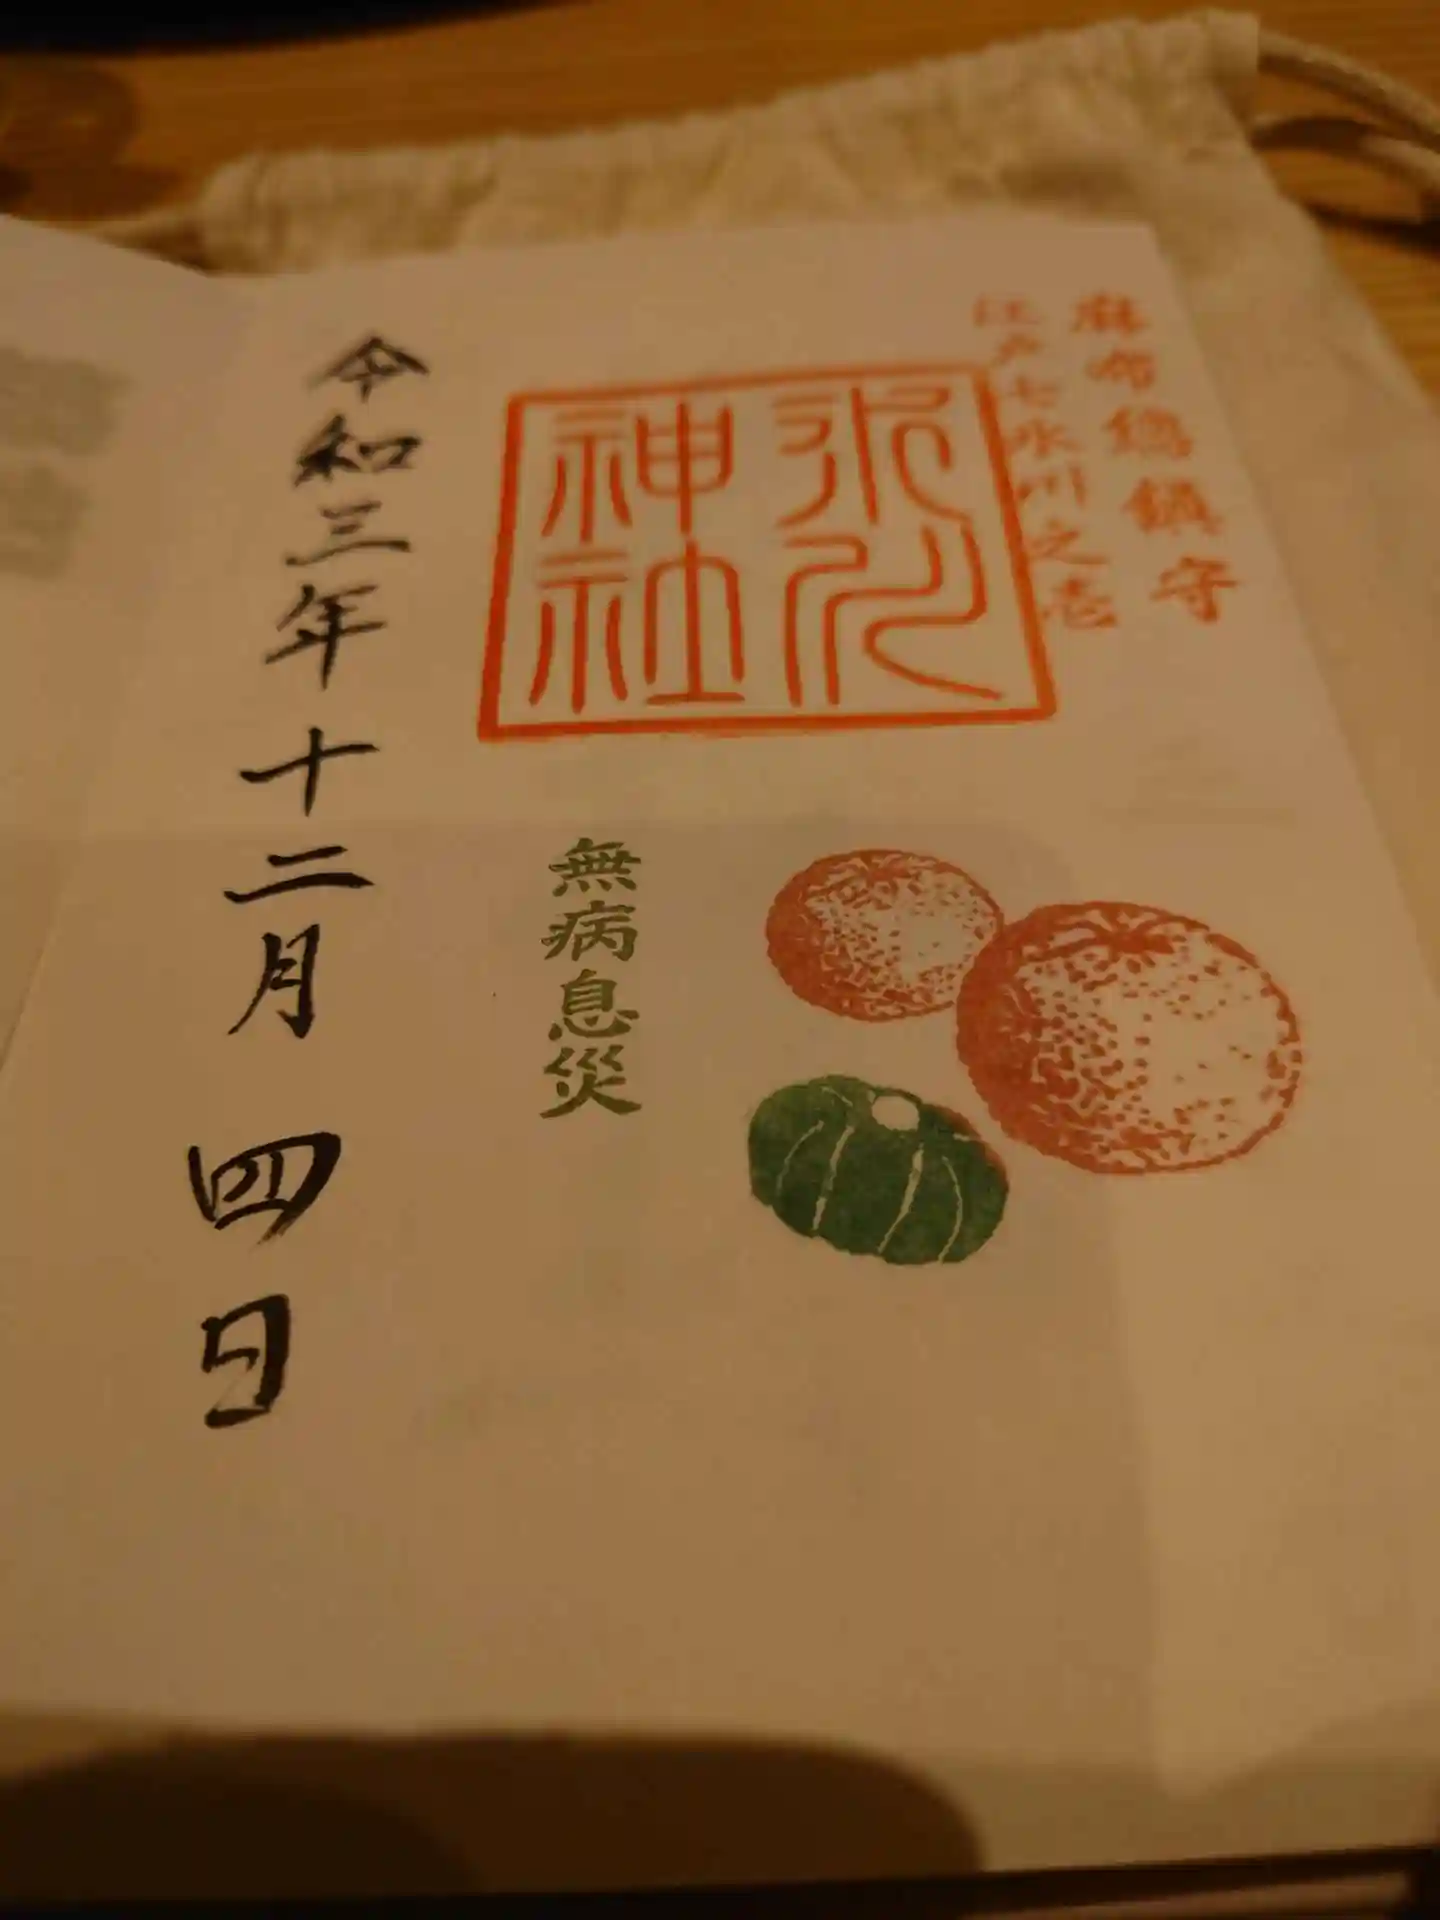 麻布總鎮守
江戸七氷川之壱
氷川
神社
無病息災
令和三年十二月四日